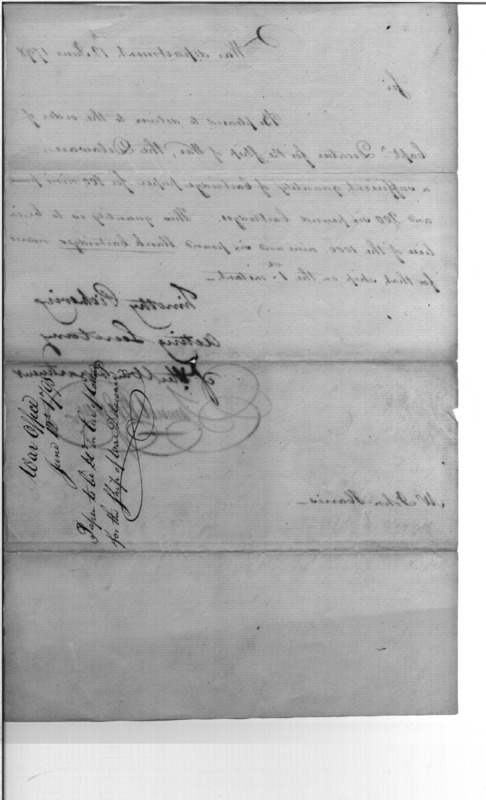 War department 12 June 1798
Sir
Be pleased to deliver to the order of
Capt. Decatur for the Ship of War, the Delaware
a sufficient quantity of cartridge paper for nine pound
and six pound cartridges. This quantity is to be in
lieu of the 1000 nine and six pound blank cartridges
for that ship on the 1st instant.
Timothy Pickering
Acting Secretary
of War department
Mr John Harris
War Office
June 12th 1798
Paper to be in lieu of
for the Ship of War Delaware